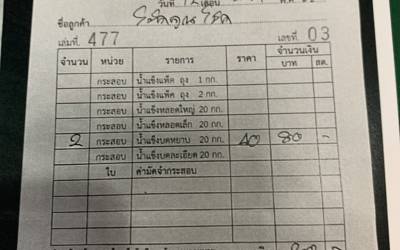 วันที่ 12 เดือน
ชื่อลูกค้า โชคคูณโชค
เล่มที่ 477 เลขที่ 03
จำนวน หน่วย รายการ ราคา จำนวนเงิน
บาท สต.
กระสอบ น้ำแข็งแพ็ค ถุง 1 กก.
กระสอบ น้ำแข็งแพ็ค ถุง 2 กก.
กระสอบ น้ำแข็งหลอดใหญ่ 20 กก.
กระสอบ น้ำแข็งหลอดเล็ก 20 กก.
2 กระสอบ น้ำแข็งบดหยาบ 20 กก. 40 80 -
กระสอบ น้ำแข็งบดละเอียด 20 กก.
ใบ ค่ามัดจำกระสอบ